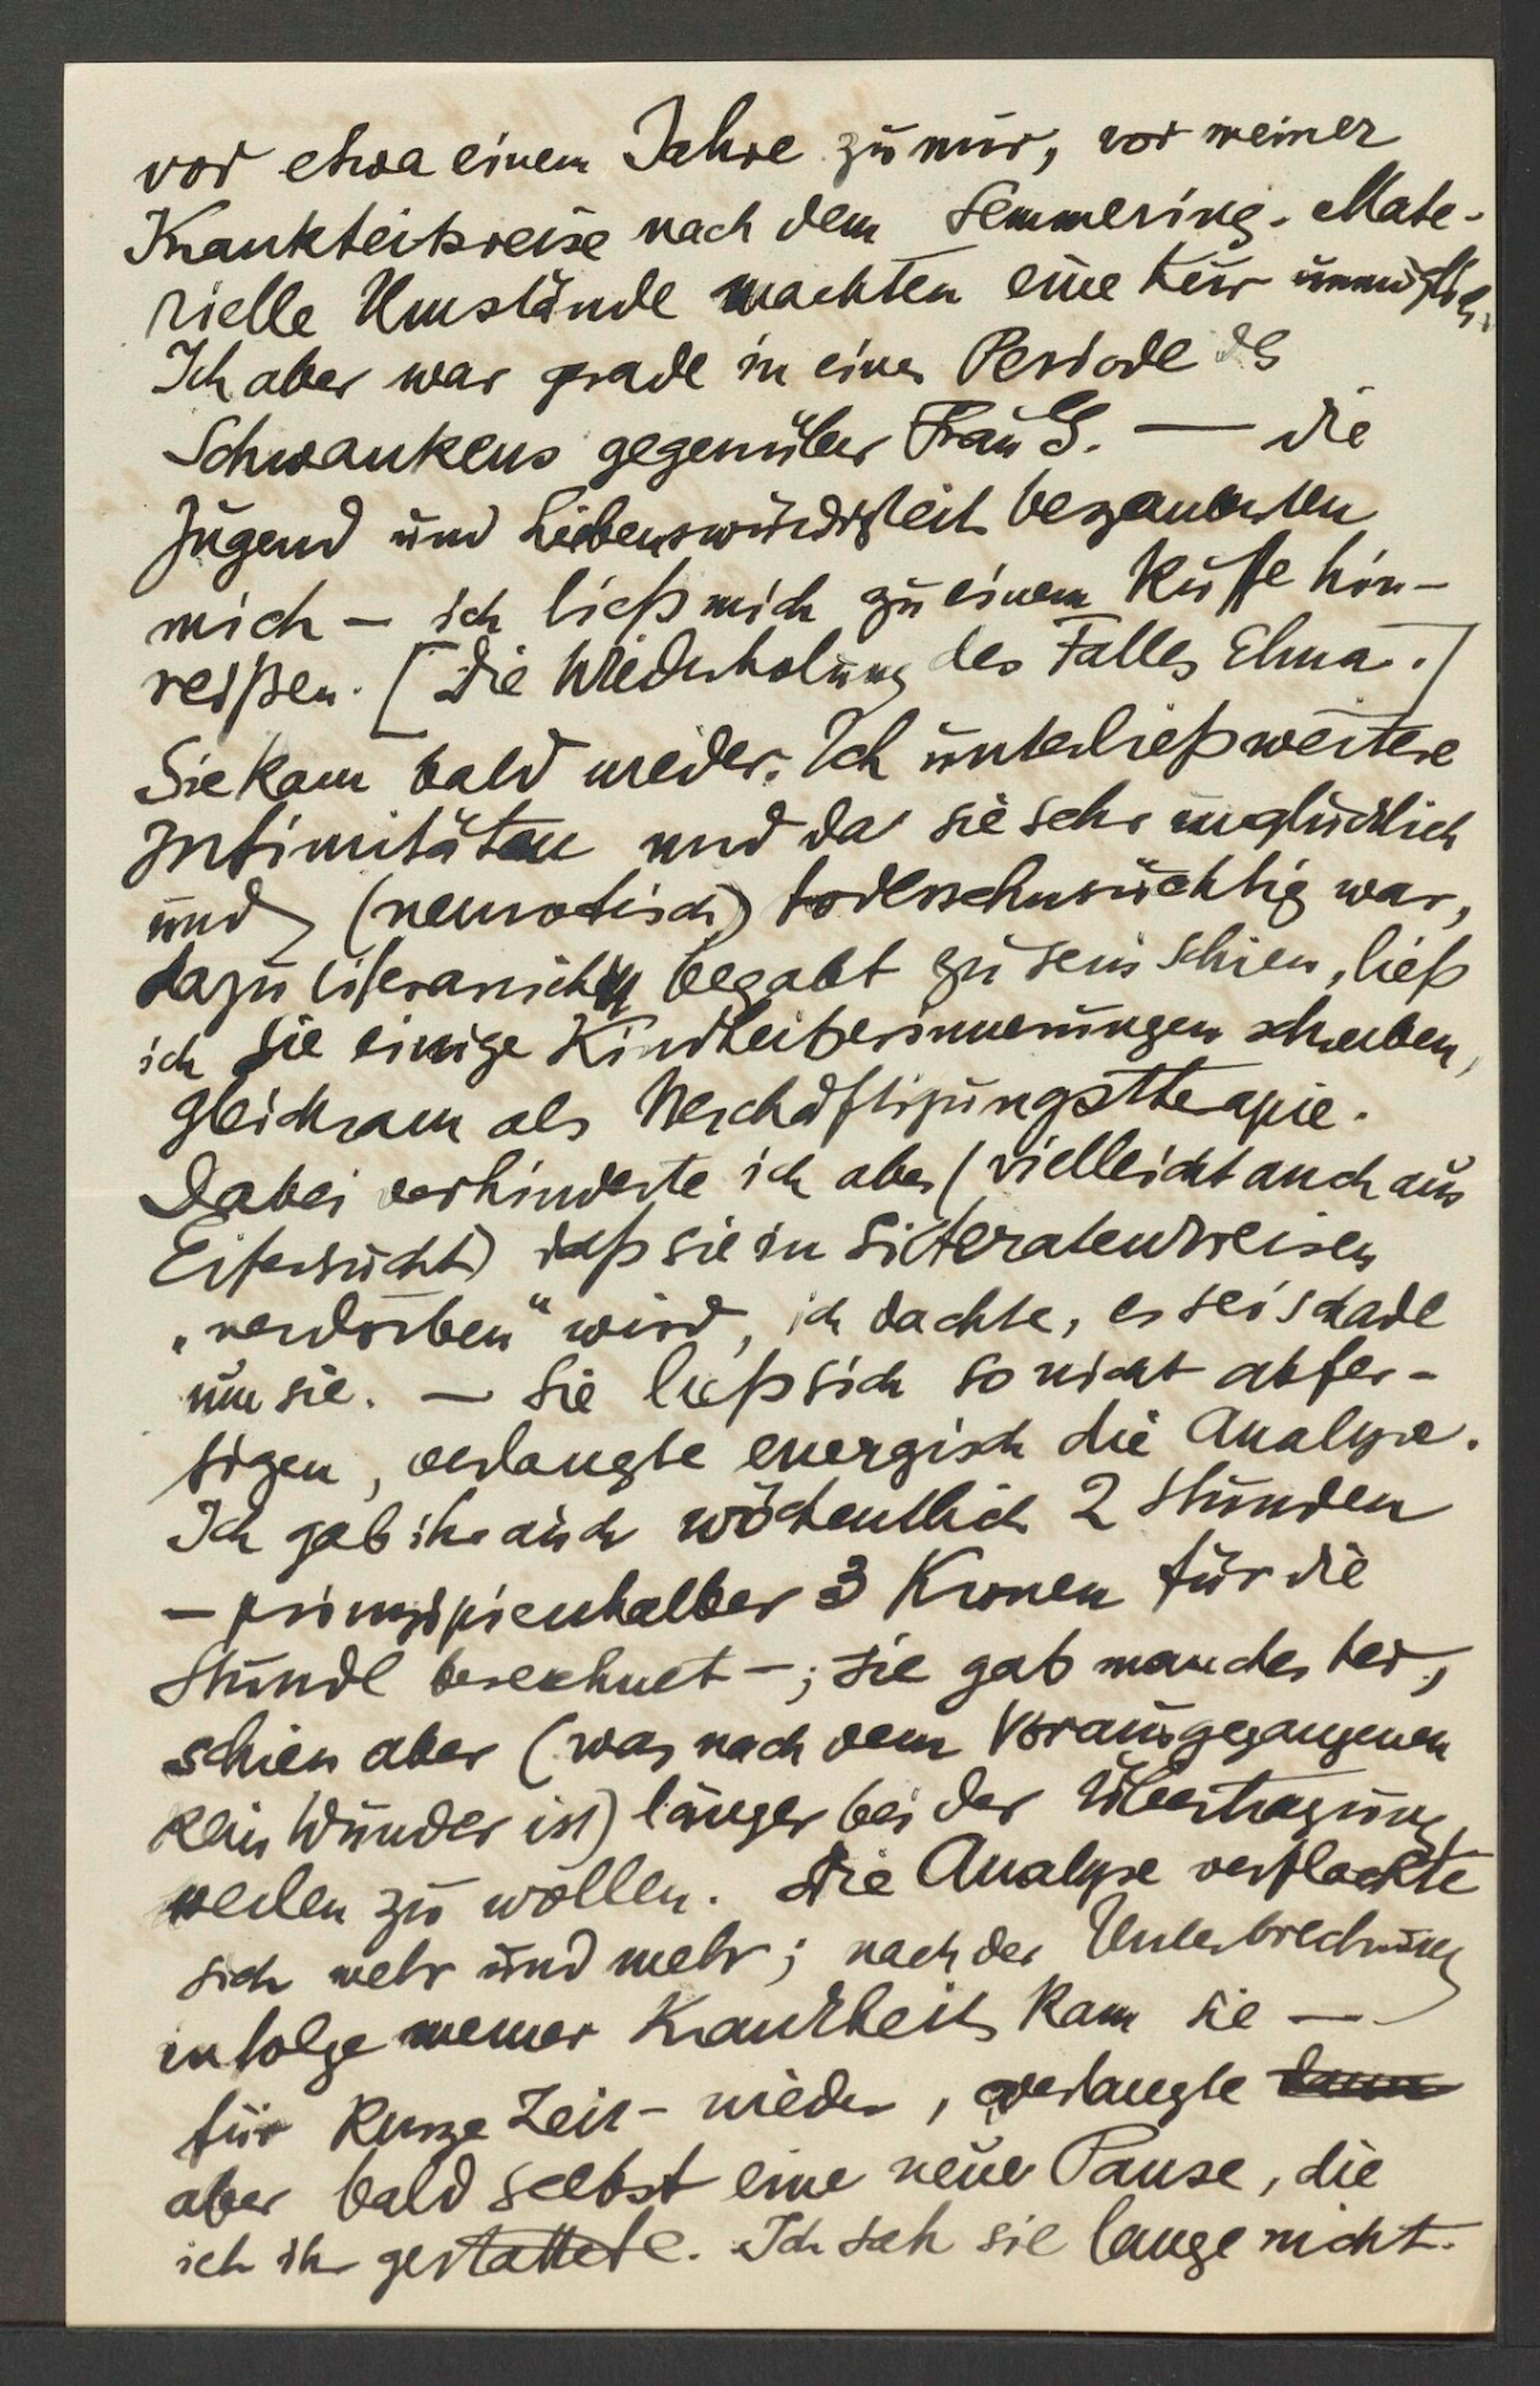 vor etwa einem Jahre zu mir, vor meiner
Krankheitsreise nach dem Semmering. Mate-
rielle Umstände machten eine Kur unmöglich.
Ich aber war grade in einer Periode des
Schwankens gegenüber Frau G. — die
Jugend und Liebenswürdigkeit bezauberten
mich – ich ließ mich zu einem Kusse hin-
reißen. [Die Wiederholung des Falles Elma.]
Sie kam bald wieder. Ich unterließ weitere
Intimitäten und da sie sehr unglücklich
und (neurotisch) todessehnsüchtig war,
dazu literarisch begabt zu sein schien, ließ
ich sie einige Kindheitserinnerungen schreiben,
gleichsam als Beschäftigungstherapie.
Dabei verhinderte ich aber (vielleicht auch aus
Eifersucht) daß sie in Litteratenkreisen
„verdorben“ wird, ich dachte, es sei schade
um sie. — Sie ließ sich so nicht abfer-
tigen, verlangte energisch die Analyse.
Ich gab ihr auch wöchentlich 2 Stunden
– prinzipienhalber 3 Kronen für die
Stunde berechnet –; sie gab manches her,
schien aber (was nach dem Vorausgegangenen
kein Wunder ist) länger bei der Übertragung
weilen zu wollen. Die Analyse verflachte
sich mehr und mehr; nach der Unterbrechung
infolge meiner Krankheit kam sie —
für kurze Zeit – wieder, verlangte
aber bald selbst eine neue Pause, die
ich ihr gestattete. Ich sah sie lange nicht.